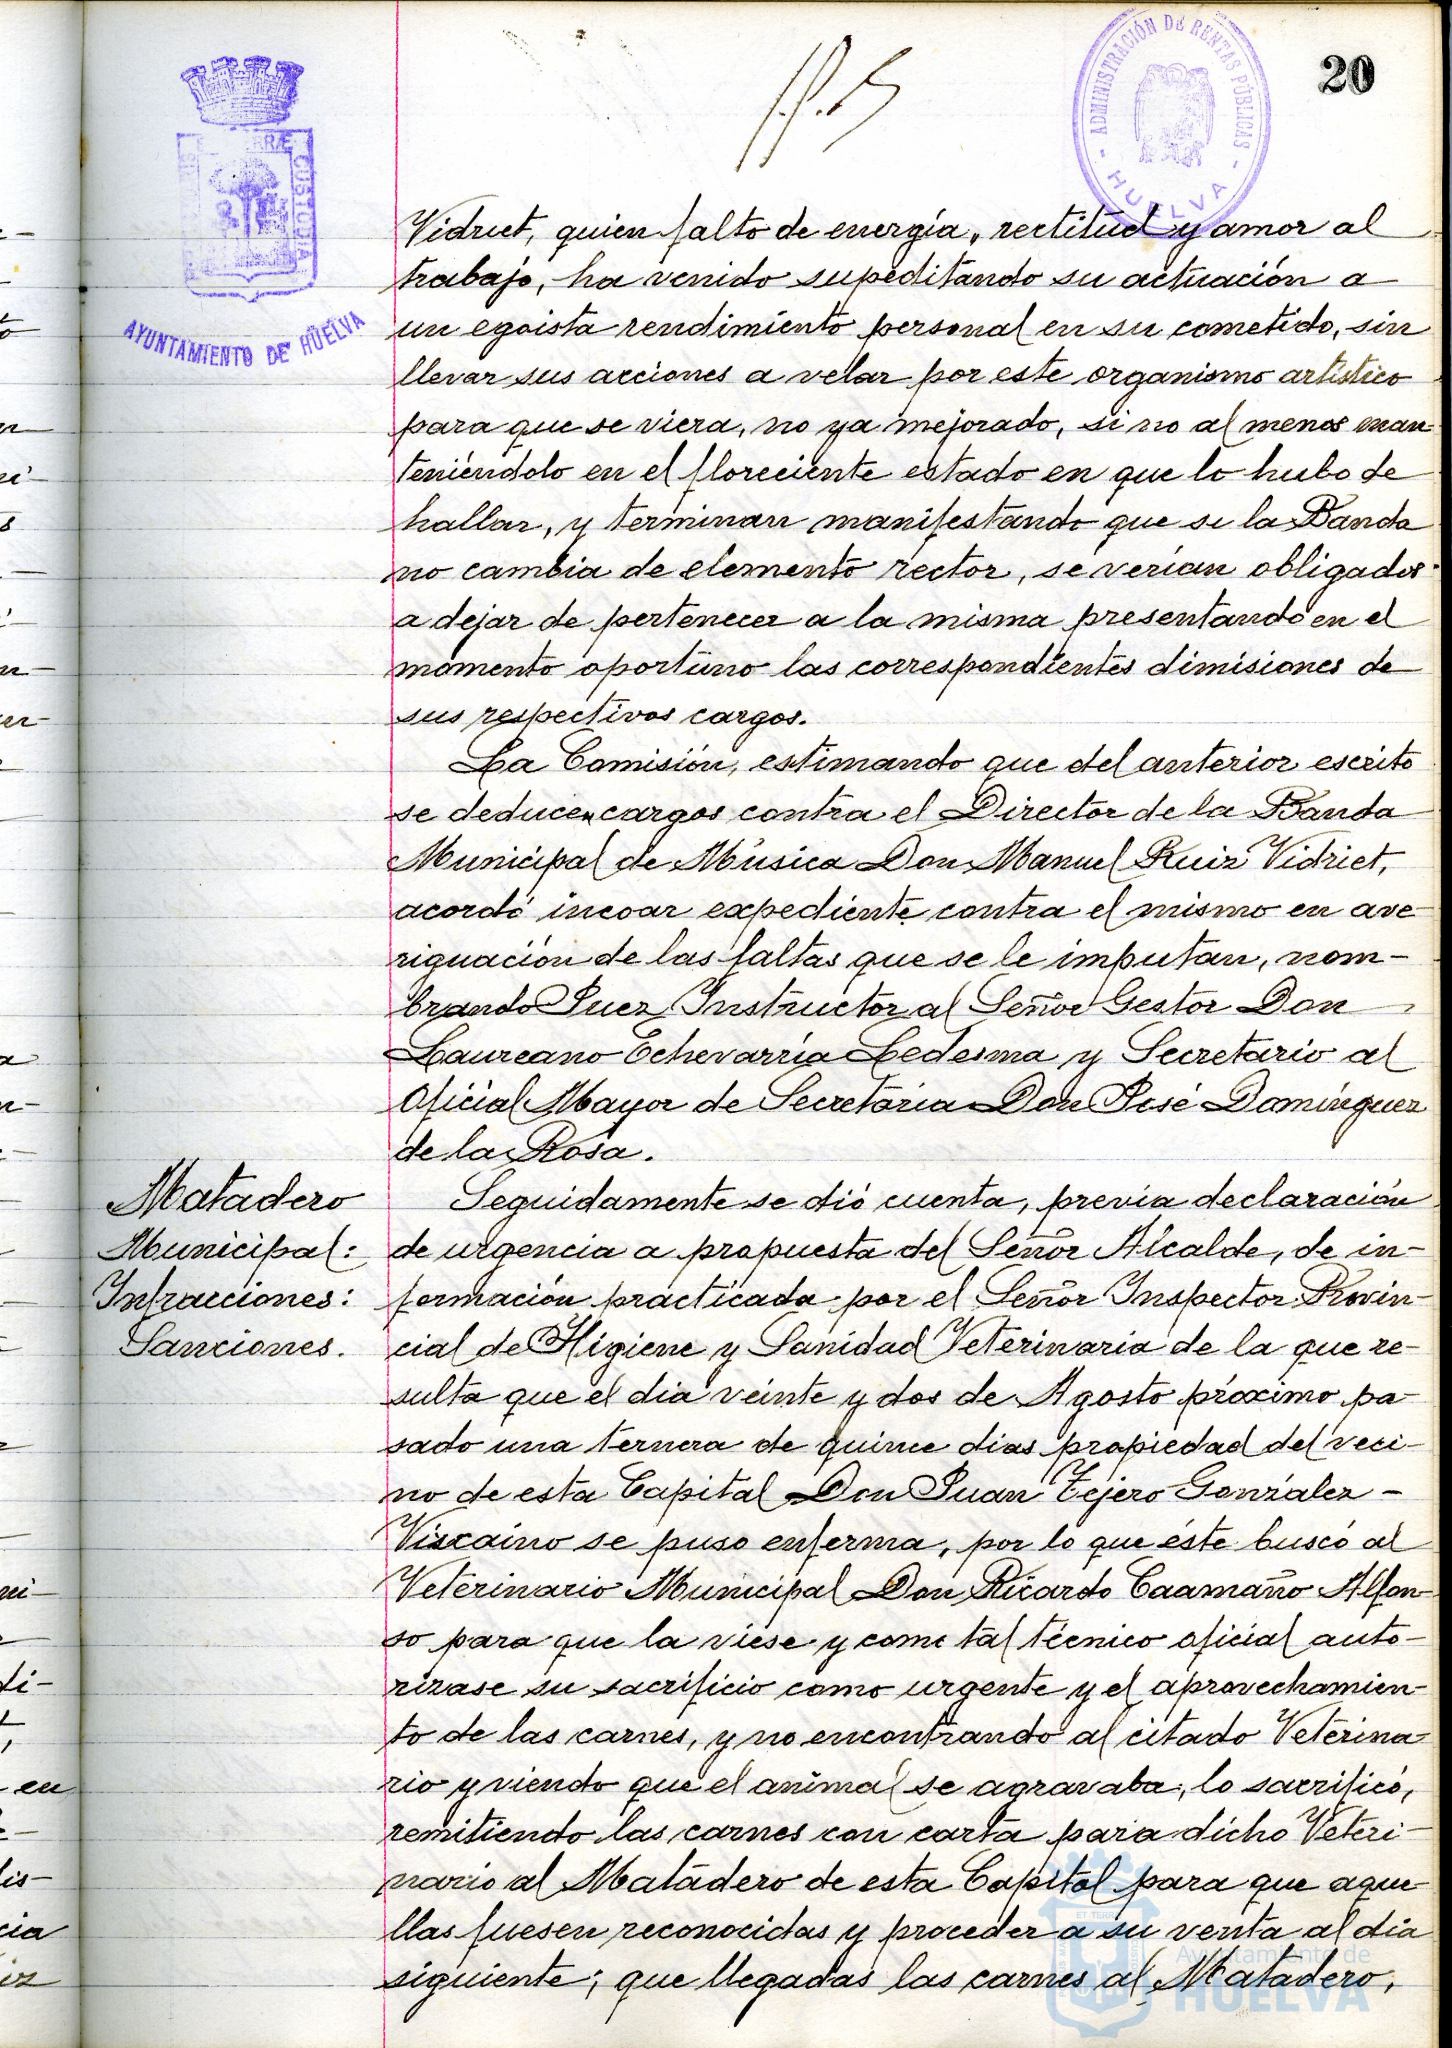 20
ADMINISTRACIÓN DE RENTAS PÚBLICAS
- HUELVA -
CUSTODIA
AYUNTAMIENTO DE HUELVA
Vidriet, quien falto de energía, rectitud y amor al
trabajo, ha venido supeditando su actuación a
un egoista rendimiento personal en su cometido, sin
llevar sus acciones a velar por este organismo artístico
para que se viera, no ya mejorado, si no al menos man-
teniéndolo en el floreciente estado en que lo hubo de
hallar, y terminan manifestando que si la Banda
no cambia de elemento rector, se verían obligados
a dejar de pertenecer a la misma presentando en el
momento oportuno las correspondientes dimisiones de
sus respectivos cargos.
La Comisión, estimando que del anterior escrito
se deducen cargos contra el Director de la Banda
Municipal de Música Don Manuel Ruiz Vidriet,
acordó incoar expediente contra el mismo en ave-
riguación de las faltas que se le imputan, nom-
brando Juez Instructor al Señor Gestor Don
Laureano Echevarría Ledesma y Secretario al
Oficial Mayor de Secretaría Don José Domínguez
de la Rosa.
Matadero
Municipal:
Infracciones:
Sanciones.
Seguidamente se dió cuenta, previa declaración
de urgencia a propuesta del Señor Alcalde, de in-
formación practicada por el Señor Inspector Provin-
cial de Higiene y Sanidad Veterinaria de la que re-
sulta que el dia veinte y dos de Agosto próximo pa-
sado una ternera de quince dias propiedad del veci-
no de esta Capital Don Juan Tejero González-
Viscaino se puso enferma, por lo que éste buscó al
Veterinario Municipal Don Ricardo Caamaño Alfon-
so para que la viese y como tal técnico oficial auto-
rizase su sacrificio como urgente y el aprovechamien-
to de las carnes, y no encontrando al citado Veterina-
rio y viendo que el animal se agravaba, lo sacrificó,
remitiendo las carnes con carta para dicho Veteri-
nario al Matadero de esta Capital para que aque-
llas fuesen reconocidas y proceder a su venta al dia
siguiente; que llegadas las carnes al Matadero,
Ayuntamiento de
HUELVA